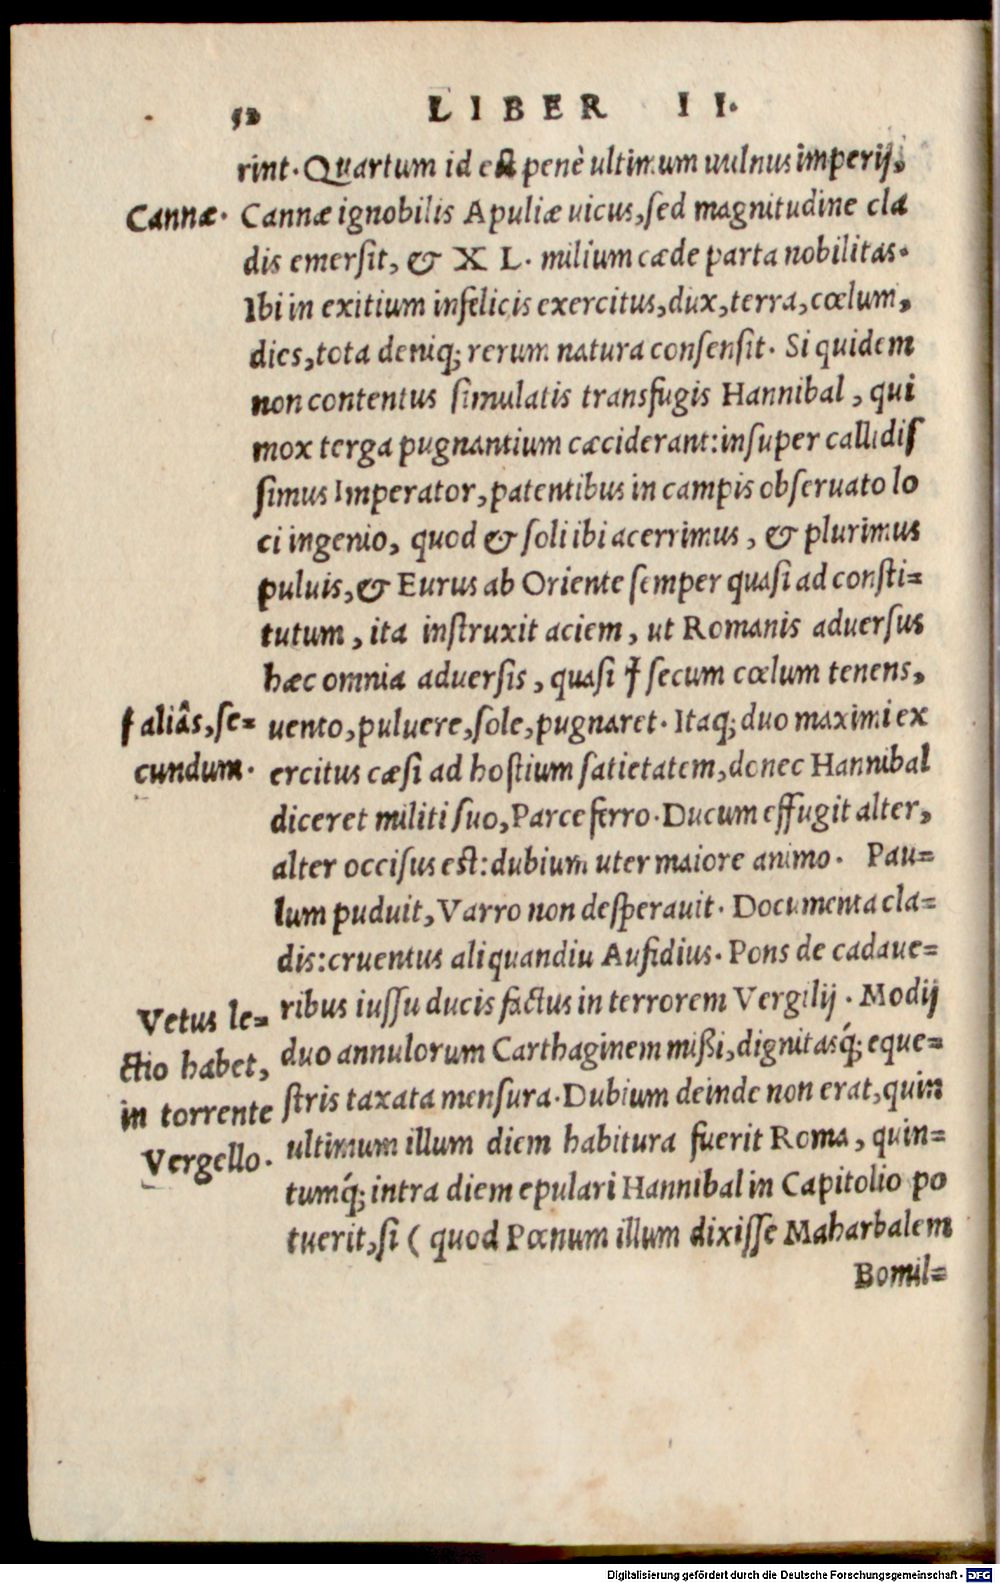 52 LIBER II.
rint. Quartum id est penè ultimum uulnus imperij,
Cannæ. Cannæ ignobilis Apuliæ uicus, sed magnitudine cla
dis emersit, & XL. milium cæde parta nobilitas.
Ibi in exitium infelicis exercitus, dux, terra, cœlum,
dies, tota deniq; rerum natura consensit. Siquidem
non contentus simulatis transfugis Hannibal, qui
mox terga pugnantium cæciderant: insuper callidis
simus Imperator, patentibus in campis obseruato lo
ci ingenio, quod & soli ibi acerrimus, & plurimus
puluis, & Eurus ab Oriente semper quasi ad consti=
tutum, ita instruxit aciem, ut Romanis aduersus
hæc omnia aduersis, quasi ſ secum cœlum tenens,
ſ aliâs, se= uento, puluere, sole, pugnaret. Itaq; duo maximi ex
cundum. ercitus cæsi ad hostium satietatem, donec Hannibal
diceret militi suo, Parce ferro. Ducum effugit alter,
alter occisus est: dubium uter maiore animo. Pau=
lum puduit, Varro non desperauit. Documenta cla=
dis: cruentus aliquandiu Aufidius. Pons de cadaue=
Vetus le= ribus iussu ducis factus in terrorem Vergilij. Modij
ctio habet, duo annulorum Carthaginem mißi, dignitasq́; eque=
in torrente stris taxata mensura. Dubium deinde non erat, quin
Vergello. ultimum illum diem habitura fuerit Roma, quin=
tumq́; intra diem epulari Hannibal in Capitolio po
tuerit, si ( quod Pœnum illum dixisse Maharbalem
Bomil=
Digitalisierung gefördert durch die Deutsche Forschungsgemeinschaft - DFG